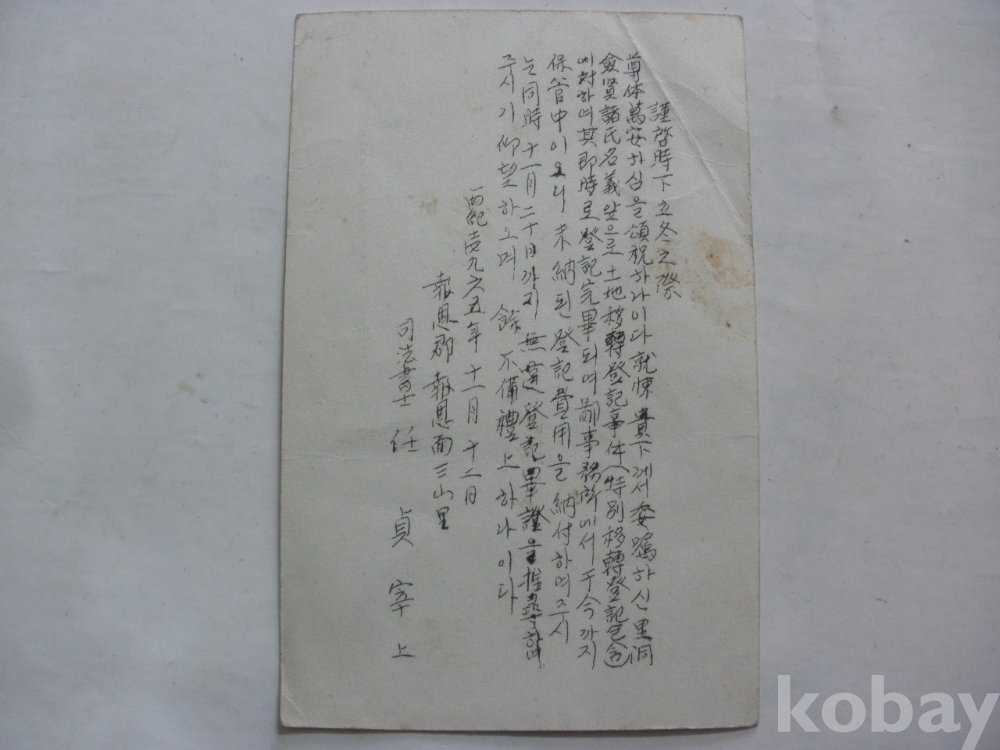 謹啓時下立冬之際
尊体萬安하심을 頌祝하나이다 就悚 貴下께서 委囑하신 里洞
諸氏名義앞으로 土地移轉登記事件(特別移轉登記包含)
에 対하여 其即時로 登記完畢되여 事務所에서 于今까지
保管中이오니 未納된 登記費用을 納付하며주시
는 同時 十一月 二十日까지 無違登記畢證을 推尋하여
주시기 仰望하오며 餘不備禮上하나이다
西紀壹九六五年 十一月 十二日
報恩郡 報恩面 三山里
司法書士 任 貞 宰 上
kobay